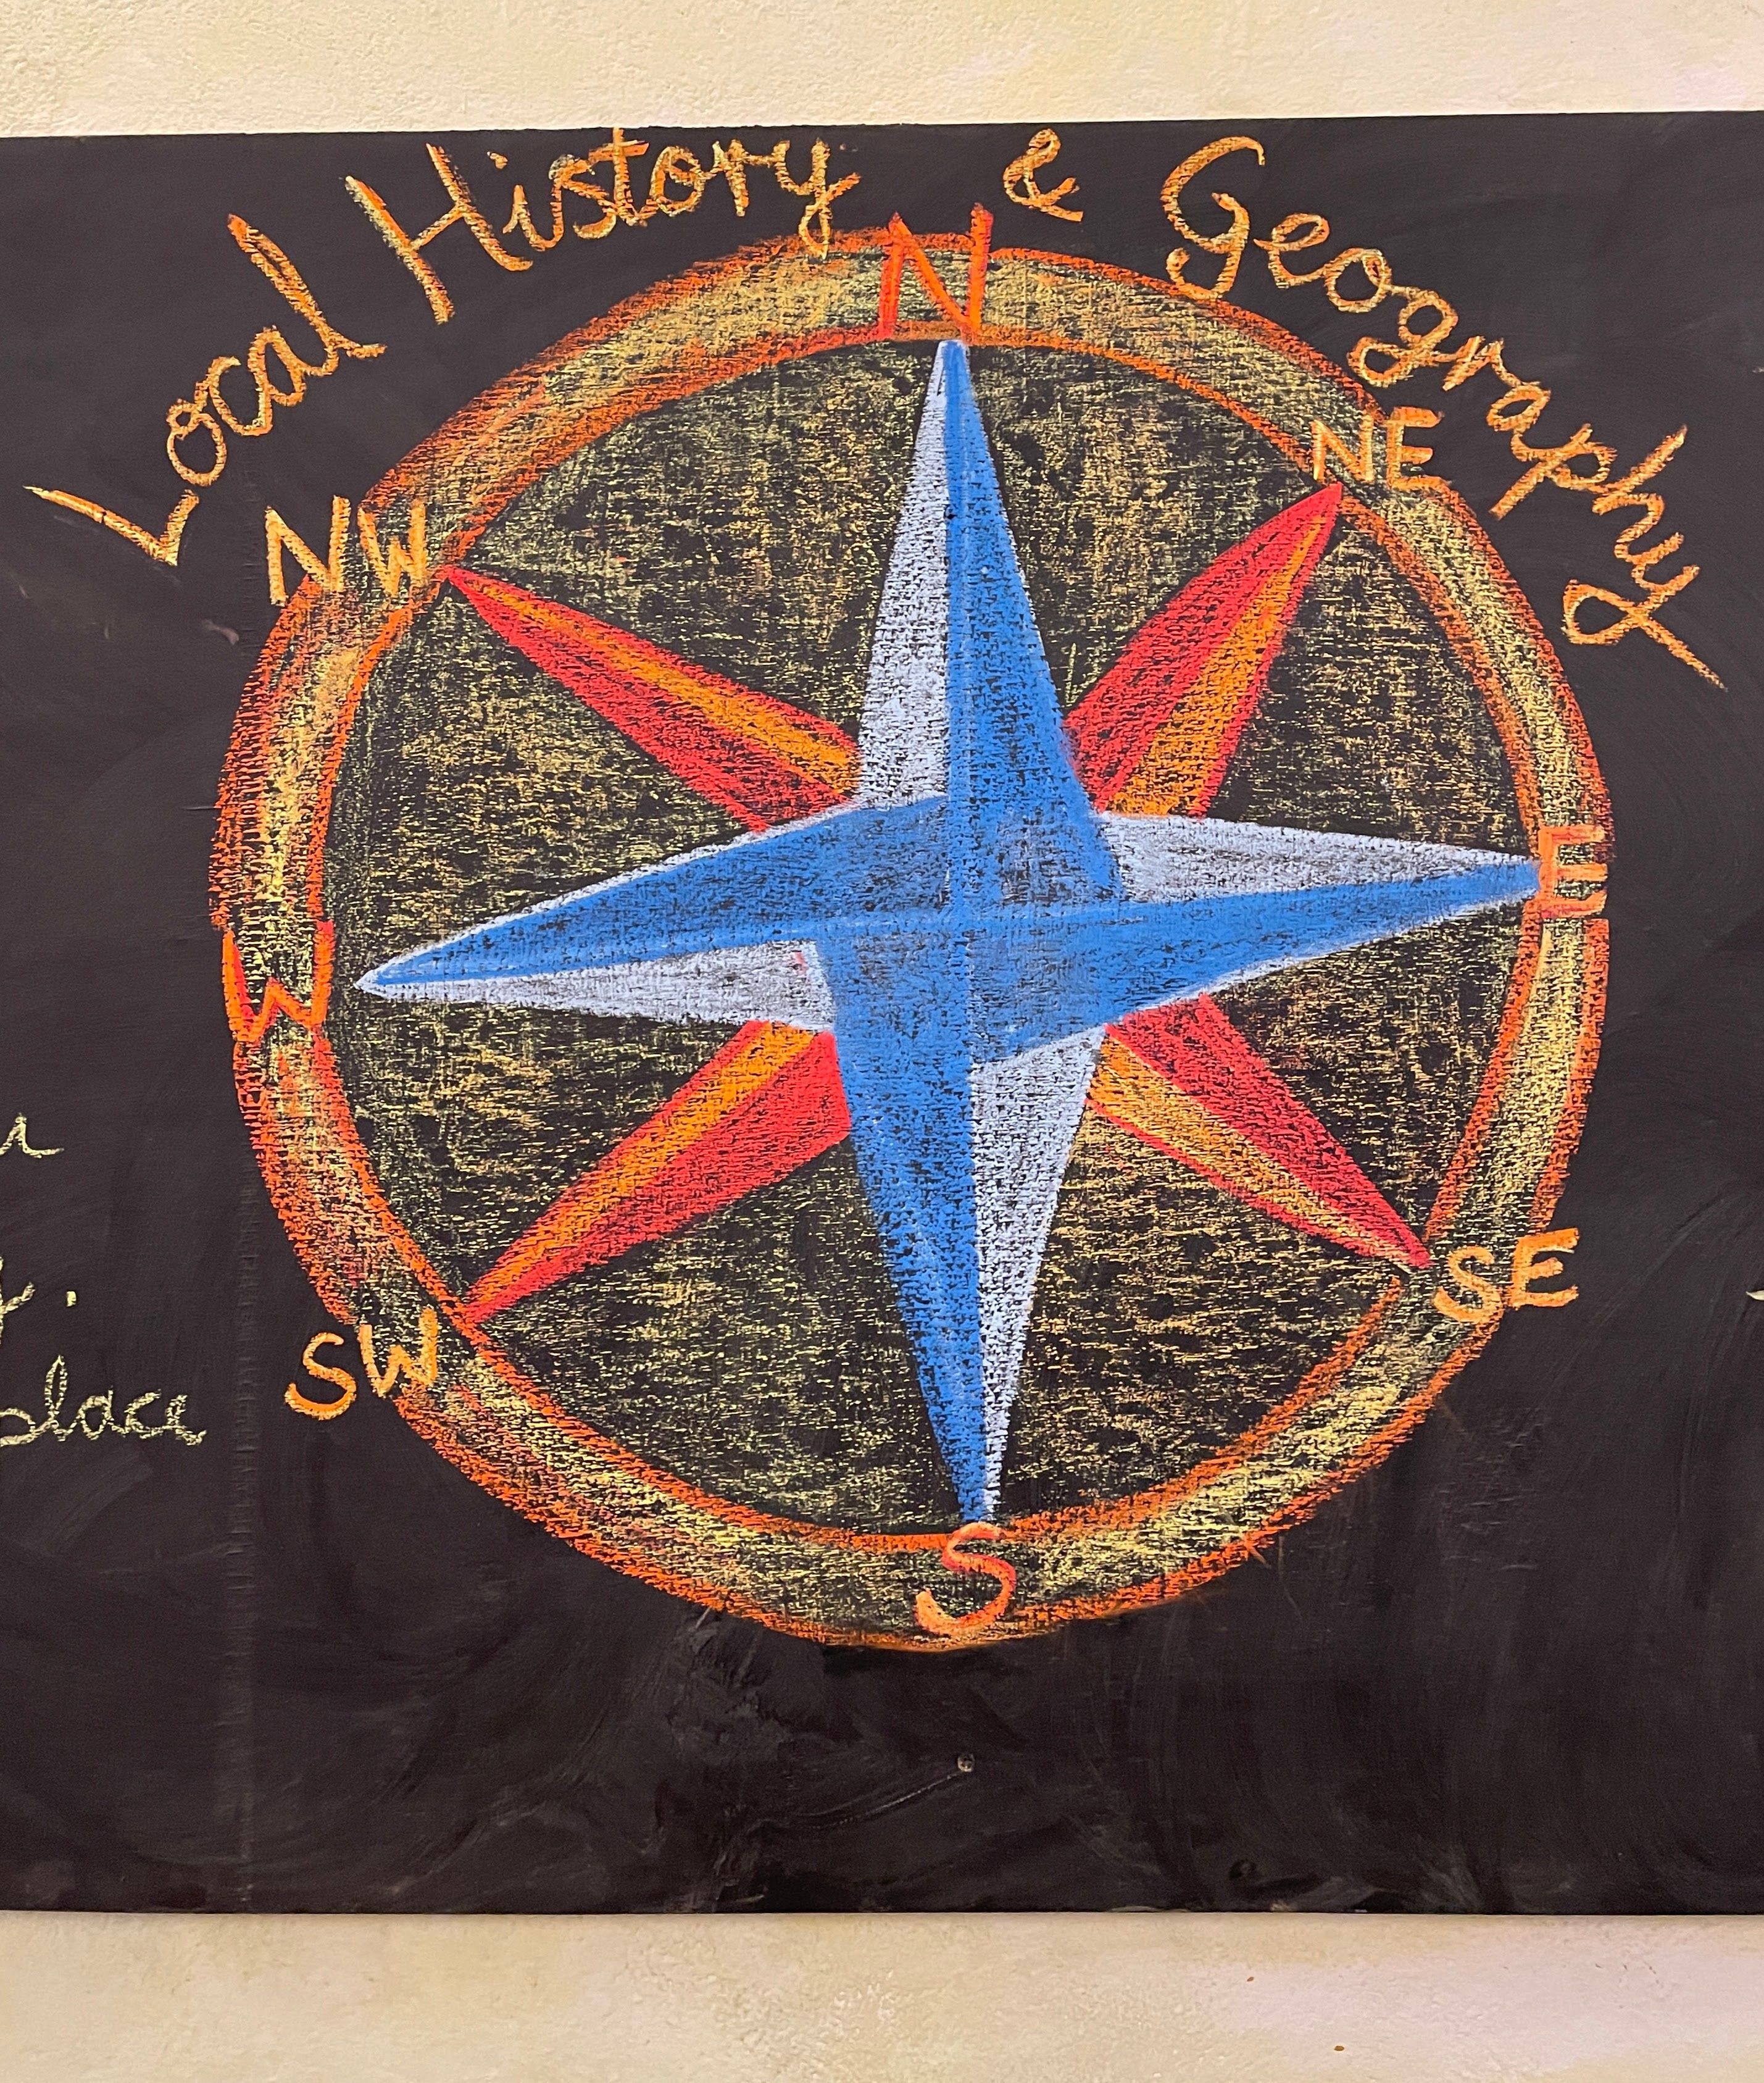 Local History & Geography
N
NW
NE
W
E
SW
SE
S
place